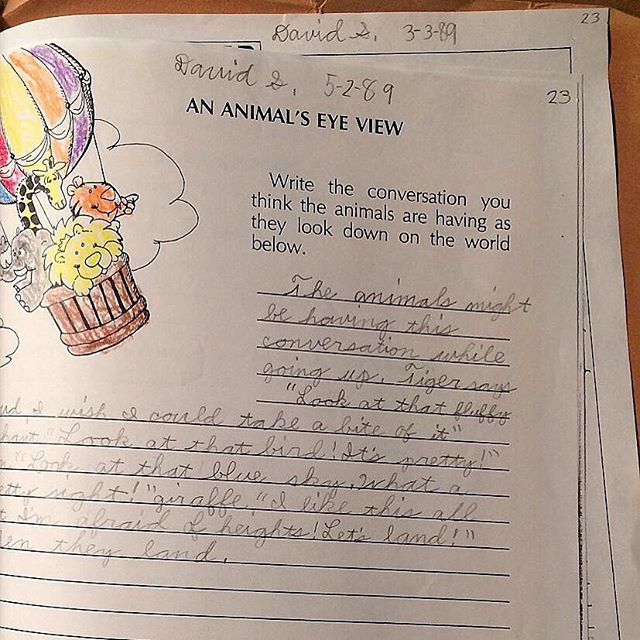 David S. 3-3-89
23
David S. 5-2-89
23
AN ANIMAL'S EYE VIEW
Write the conversation you
think the animals are having as
they look down on the world
below.
The animals might
be having this
conversation while
going up. Tiger says
"Look at that fluffy
I wish I could take a bite of it"
"Look at that bird! It's pretty!"
"Look at that blue sky. What a
sight!" giraffe, "I like this all
I'm afraid of heights! Let's land!"
they land.